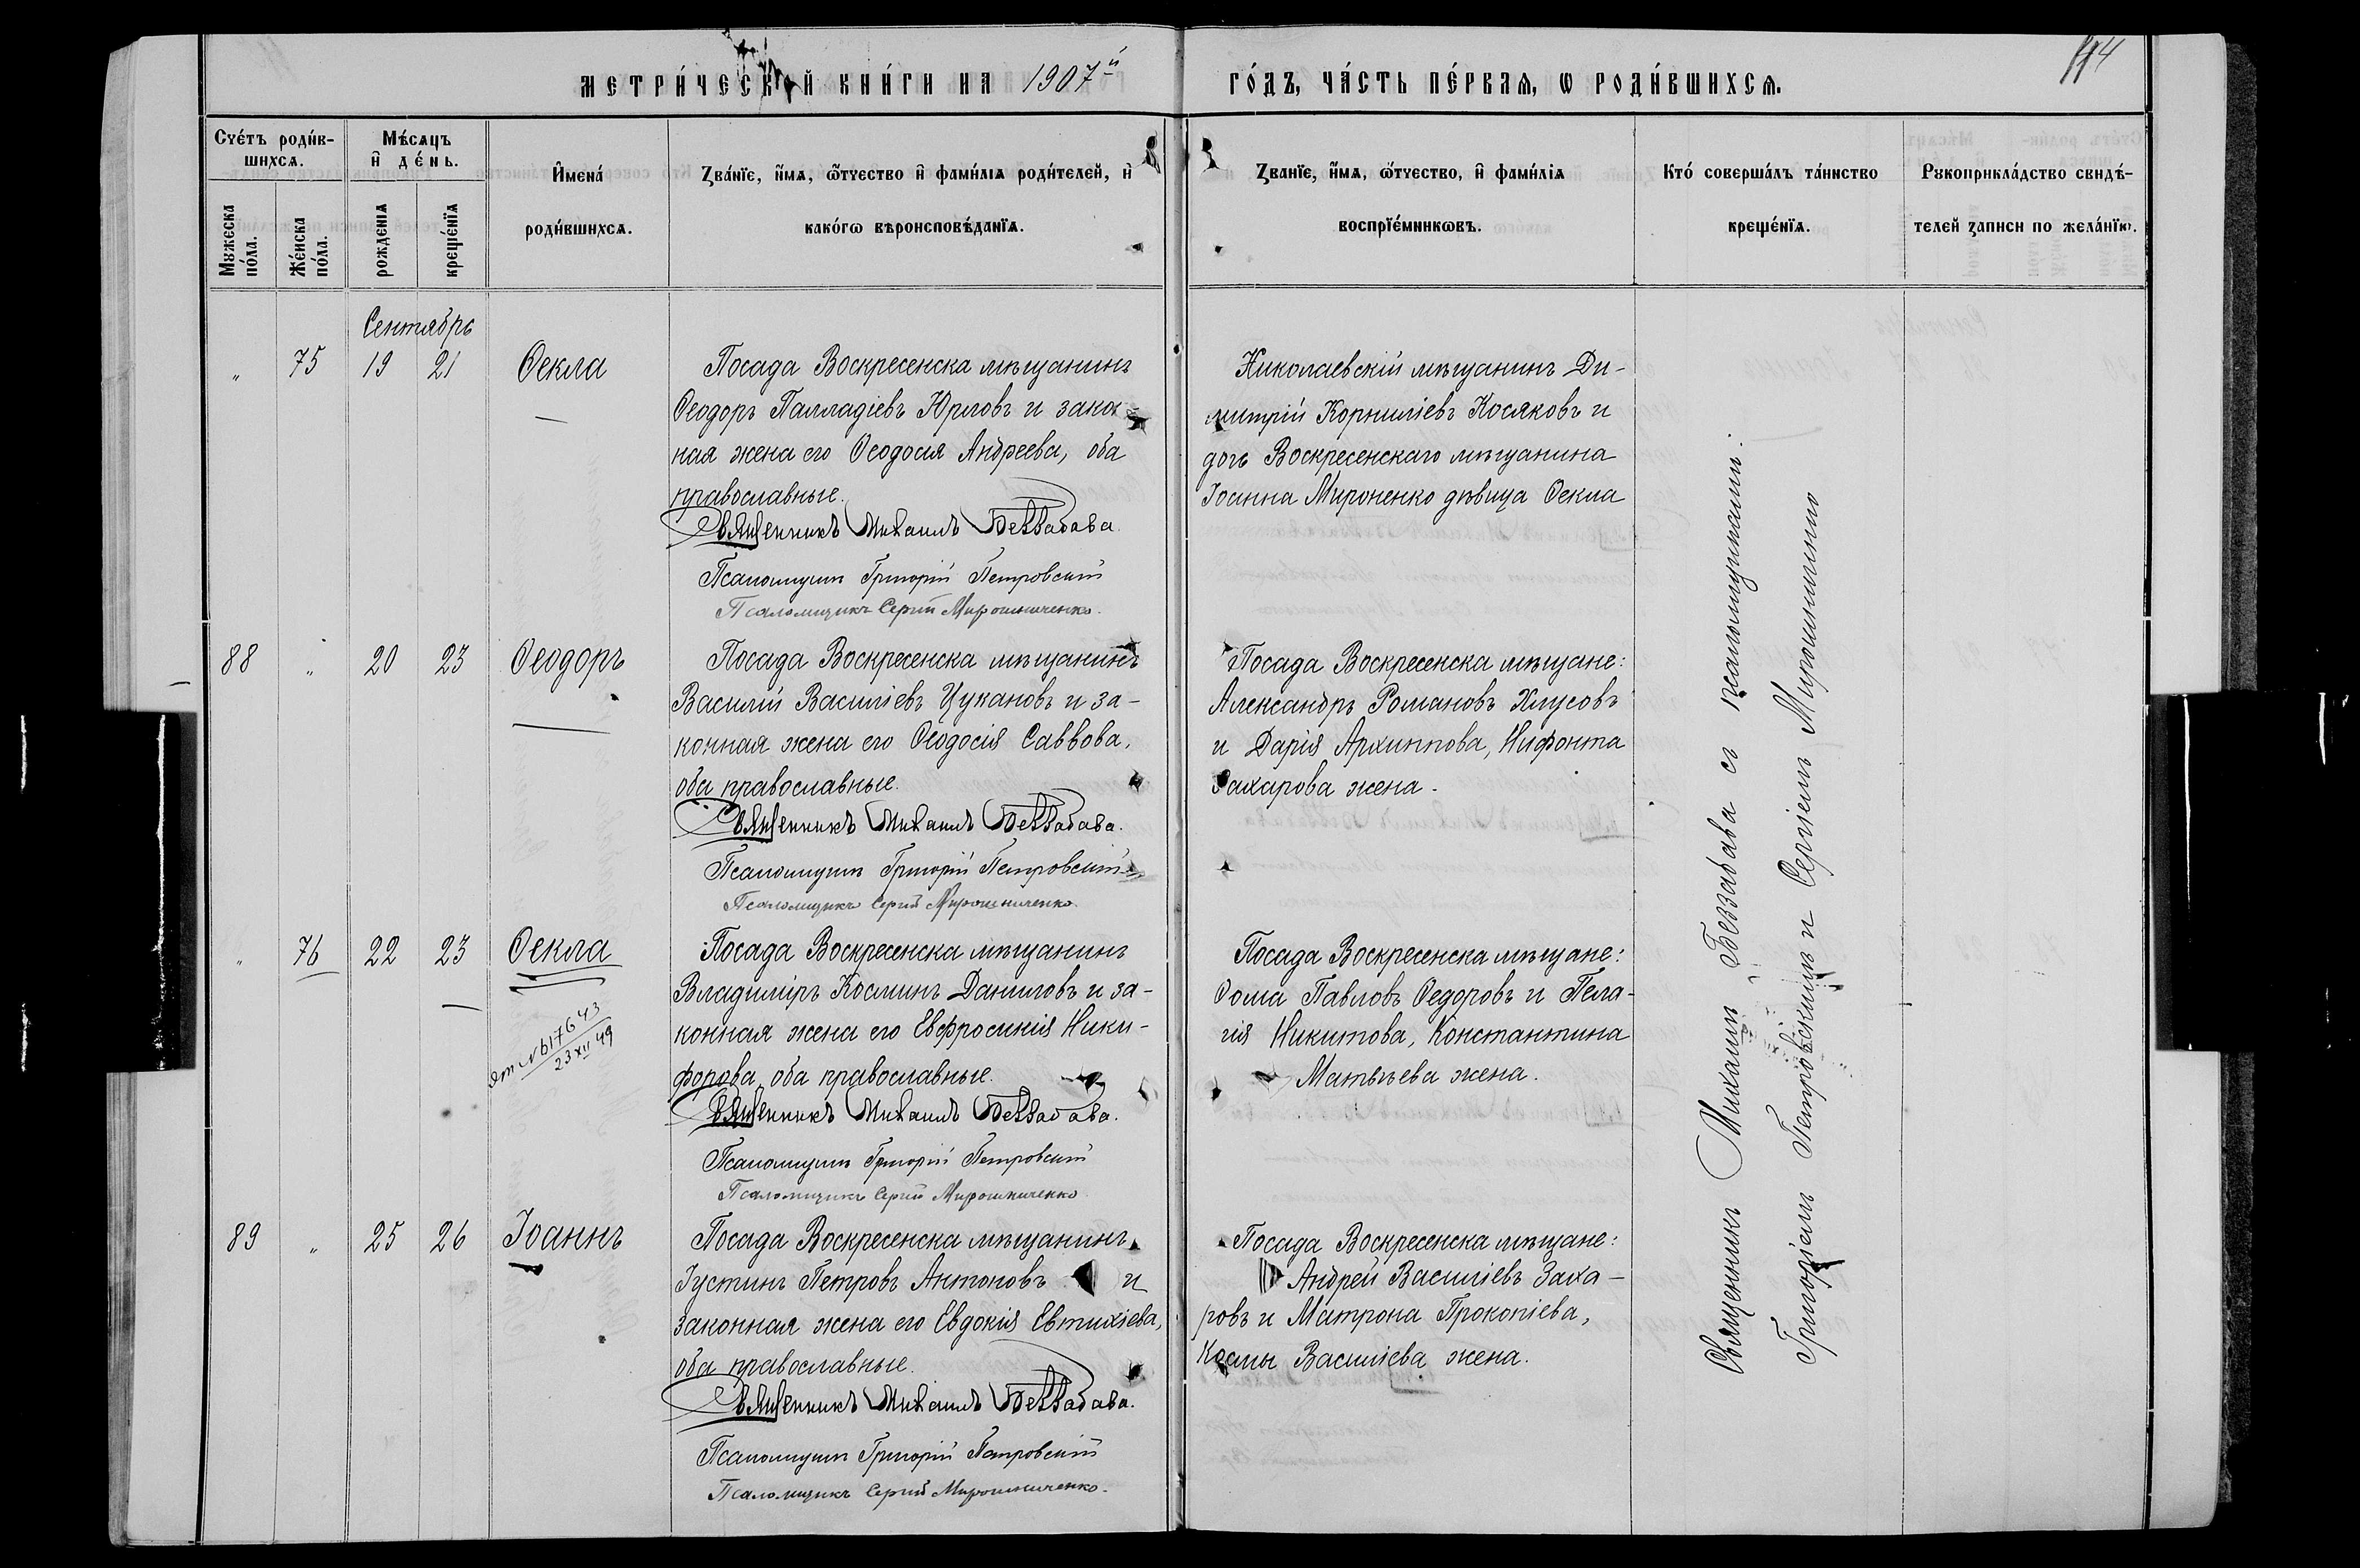 МЕТРИ́ЧЕСКОЙ КНИ́ГИ НА 1907й ГО́ДЪ, ЧА́СТЬ ПЕ́РВАѦ, Ѡ РОДИ́ВШИХСѦ.
Сче́тъ роди́в-
шихсѧ.
Мꙋжеска
по́ла.
Же́нска
по́ла.
Мѣ́сѧцъ
и҆ де́нь.
рожденіѧ
креще́нїѧ
И҆мена́
роди́вшихсѧ.
Зва́нїе, и҆́мѧ, ѻ҆́тчество и҆ фами́лїѧ роди́телей, и҆
како́гѡ вѣроисповѣ́данїѧ.
Званїе, и҆́мѧ, ѻ҆́тчество, и҆ фами́лїѧ
воспрїе́мникѡвъ.
Кто́ соверша́лъ та́инство
креще́нїѧ.
Рꙋкоприкла́дство свидѣ́-
телей записи по жела́нїю.
Сентябрь
„ 75 19 21 Ѳекла
Посада Воскресенска мѣщанинъ
Ѳеодоръ Палладіевъ Юрловъ и закон-
ная жена его Ѳеодосія Андреева, оба
православные.
Священникъ Михаилъ Беззабава.
Псаломщикъ Григорій Петровскій
Псаломщикъ Сергій Мирошниченко.
Николаевскій мѣщанинъ Ди-
митрій Корниліевъ Косяковъ и
дочь Воскресенскаго мѣщанина
Іоанна Мироненко дѣвица Ѳекла
88 „ 20 23 Ѳеодоръ
Посада Воскресенска мѣщанинъ
Василій Василіевъ Цукановъ и за-
конная жена его Ѳеодосія Саввова,
оба православные.
Священникъ Михаилъ Беззабава.
Псаломщикъ Григорій Петровскій
Псаломщикъ Сергій Мирошниченко.
Посада Воскресенска мѣщане:
Александръ Романовъ Хлусовъ
и Дарія Архиппова, Нифонта
Захарова жена.
„ 76 22 23 Ѳекла
23 XII 49
Посада Воскресенска мѣщанинъ
Владиміръ Косминъ Даниловъ и за-
конная жена его Евфросинія Ники-
форова, оба православные.
Священникъ Михаилъ Беззабава.
Псаломщикъ Григорій Петровскій
Псаломщикъ Сергій Мирошниченко
Посада Воскресенска мѣщане:
Ѳома Павловъ Ѳедоровъ и Пела-
гія Никитова, Константина
Матвѣева жена.
89 „ 25 26 Іоаннъ
Посада Воскресенска мѣщанинъ
Іустинъ Петровъ Антоновъ и
законная жена его Евдокія Евтихіева,
оба православные.
Священникъ Михаилъ Беззабава.
Псаломщикъ Григорій Петровскій
Псаломщикъ Сергій Мирошниченко.
Посада Воскресенска мѣщане:
Андрей Василіевъ Заха-
ровъ и Матрона Прокопіева,
Космы Василіева жена.
Священникъ Михаилъ Беззабава съ псаломщиками:
Григоріемъ Петровскимъ и Сергіемъ Мирошниченко